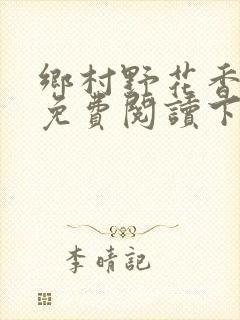 鄉村野花香
免費閱讀下
李晴記